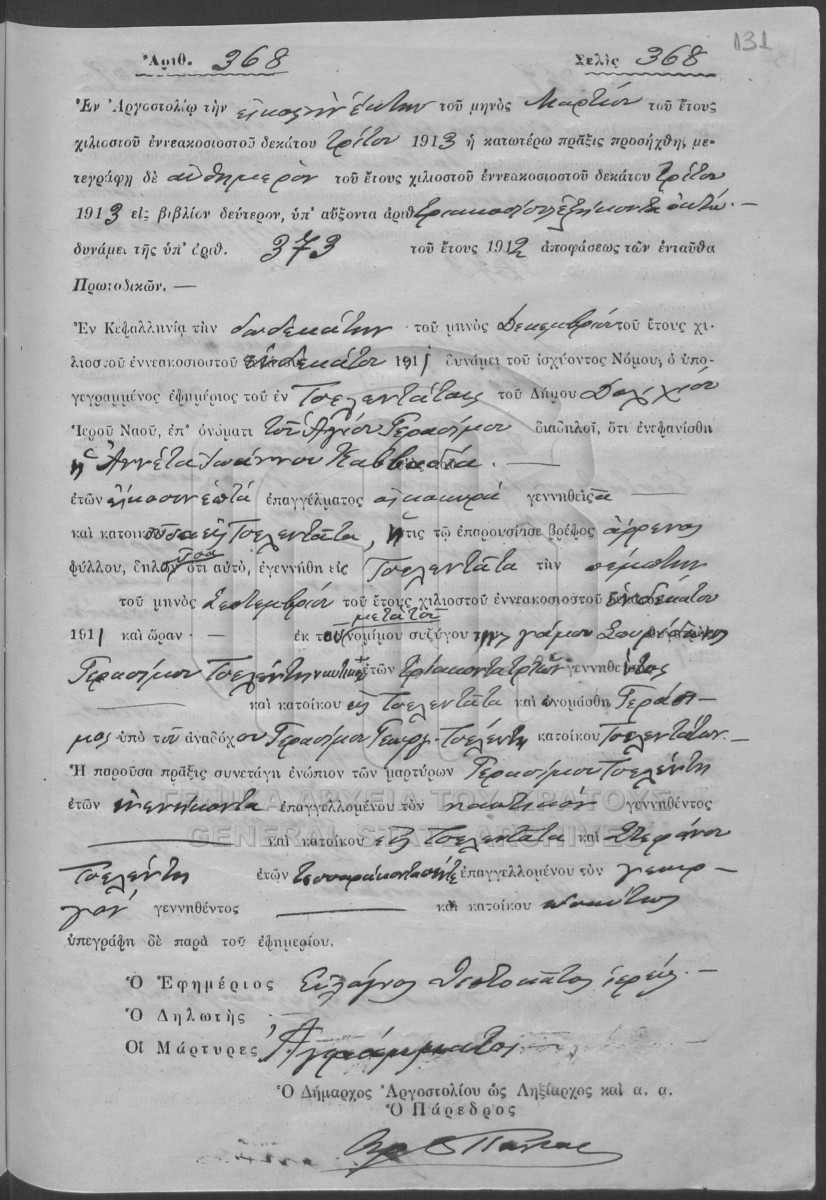 131
Ἀριθ. 368 Σελὶς 368
Ἐν Ἀργοστολίῳ τὴν εἰκοστὴν ἕκτην τοῦ μηνὸς Μαρτίου τοῦ ἔτους
χιλιοστοῦ ἐννεακοσιοστοῦ δεκάτου τρίτου 1913 ἡ κατωτέρω πρᾶξις προσήχθη, με-
τεγράφη δὲ αὐθημερὸν τοῦ ἔτους χιλιοστοῦ ἐννεακοσιοστοῦ δεκάτου τρίτου
1913 εἰς βιβλίον δεύτερον, ὑπ' αὔξοντα ἀριθ. τριακόσια ἑξήκοντα ὀκτώ. —
δυνάμει τῆς ὑπ' ἀριθ. 373 τοῦ ἔτους 1912 ἀποφάσεως τῶν ἐνταῦθα
Πρωτοδικῶν. —
Ἐν Κεφαλληνίᾳ τὴν δωδεκάτην τοῦ μηνὸς Δεκεμβρίου τοῦ ἔτους χι-
λιοστοῦ ἐννεακοσιοστοῦ ἑνδεκάτου 1911 δυνάμει τοῦ ἰσχύοντος Νόμου, ὁ ὑπο-
γεγραμμένος ἐφημέριος τοῦ ἐν Τσελεντάταις τοῦ Δήμου Δολιχίου
Ἱεροῦ Ναοῦ, ἐπ' ὀνόματι τοῦ Ἁγίου Γερασίμου διαδηλοῖ, ὅτι ἐνεφανίσθη
ἡ Ἀννέτα Ἰωάννου Καββαδία. —
ἐτῶν εἴκοσιν ἑπτά ἐπαγγέλματος οἰκοκυρά γεννηθεῖσα —
καὶ κατοικοῦσα εἰς Τσελεντάτα, ἥτις τῷ ἐπαρουσίασε βρέφος ἄρρενος
φύλλου, δηλοῦσα ὅτι αὐτὸ, ἐγεννήθη εἰς Τσελεντάτα τὴν πέμπτην
τοῦ μηνὸς Σεπτεμβρίου τοῦ ἔτους χιλιοστοῦ ἐννεακοσιοστοῦ ἑνδεκάτου
1911 καὶ ὥραν — ἐκ τοῦ νομίμου μετὰ τοῦ συζύγου της γάμου
Γερασίμου Τσελέντη ναυτικοῦ ἐτῶν τριάκοντα τριῶν γεννηθέντος
— καὶ κατοίκου εἰς Τσελεντάτα καὶ ὠνομάσθη Γεράσι-
μος ὑπὸ τοῦ ἀναδόχου Γερασίμου Γεωργ. Τσελέντη κατοίκου Τσελεντάτων —
Ἡ παροῦσα πρᾶξις συνετάγη ἐνώπιον τῶν μαρτύρων Γερασίμου Τσελέντη
ἐτῶν ἐνενήκοντα ἐπαγγελλομένου τὸν ναυτικόν γεννηθέντος
— καὶ κατοίκου εἰς Τσελεντάτα καὶ Σπεράνου
Τσελέντη ἐτῶν τεσσαράκοντα πέντε ἐπαγγελλομένου τὸν γεωρ-
γόν γεννηθέντος — καὶ κατοίκου ὡσαύτως
ὑπεγράφη δὲ παρὰ τοῦ ἐφημερίου.
Ὁ Ἐφημέριος Εὐλόγιος Θεοτοκάτος ἱερεύς. —
Ὁ Δηλωτὴς —
Οἱ Μάρτυρες Ἀγράμματοι
Ὁ Δήμαρχος Ἀργοστολίου ὡς Ληξίαρχος καὶ α. α.
Ὁ Πάρεδρος
ΓΕΝΙΚΑ ΑΡΧΕΙΑ ΤΟΥ ΚΡΑΤΟΥΣ
GENERAL STATE ARCHIVES